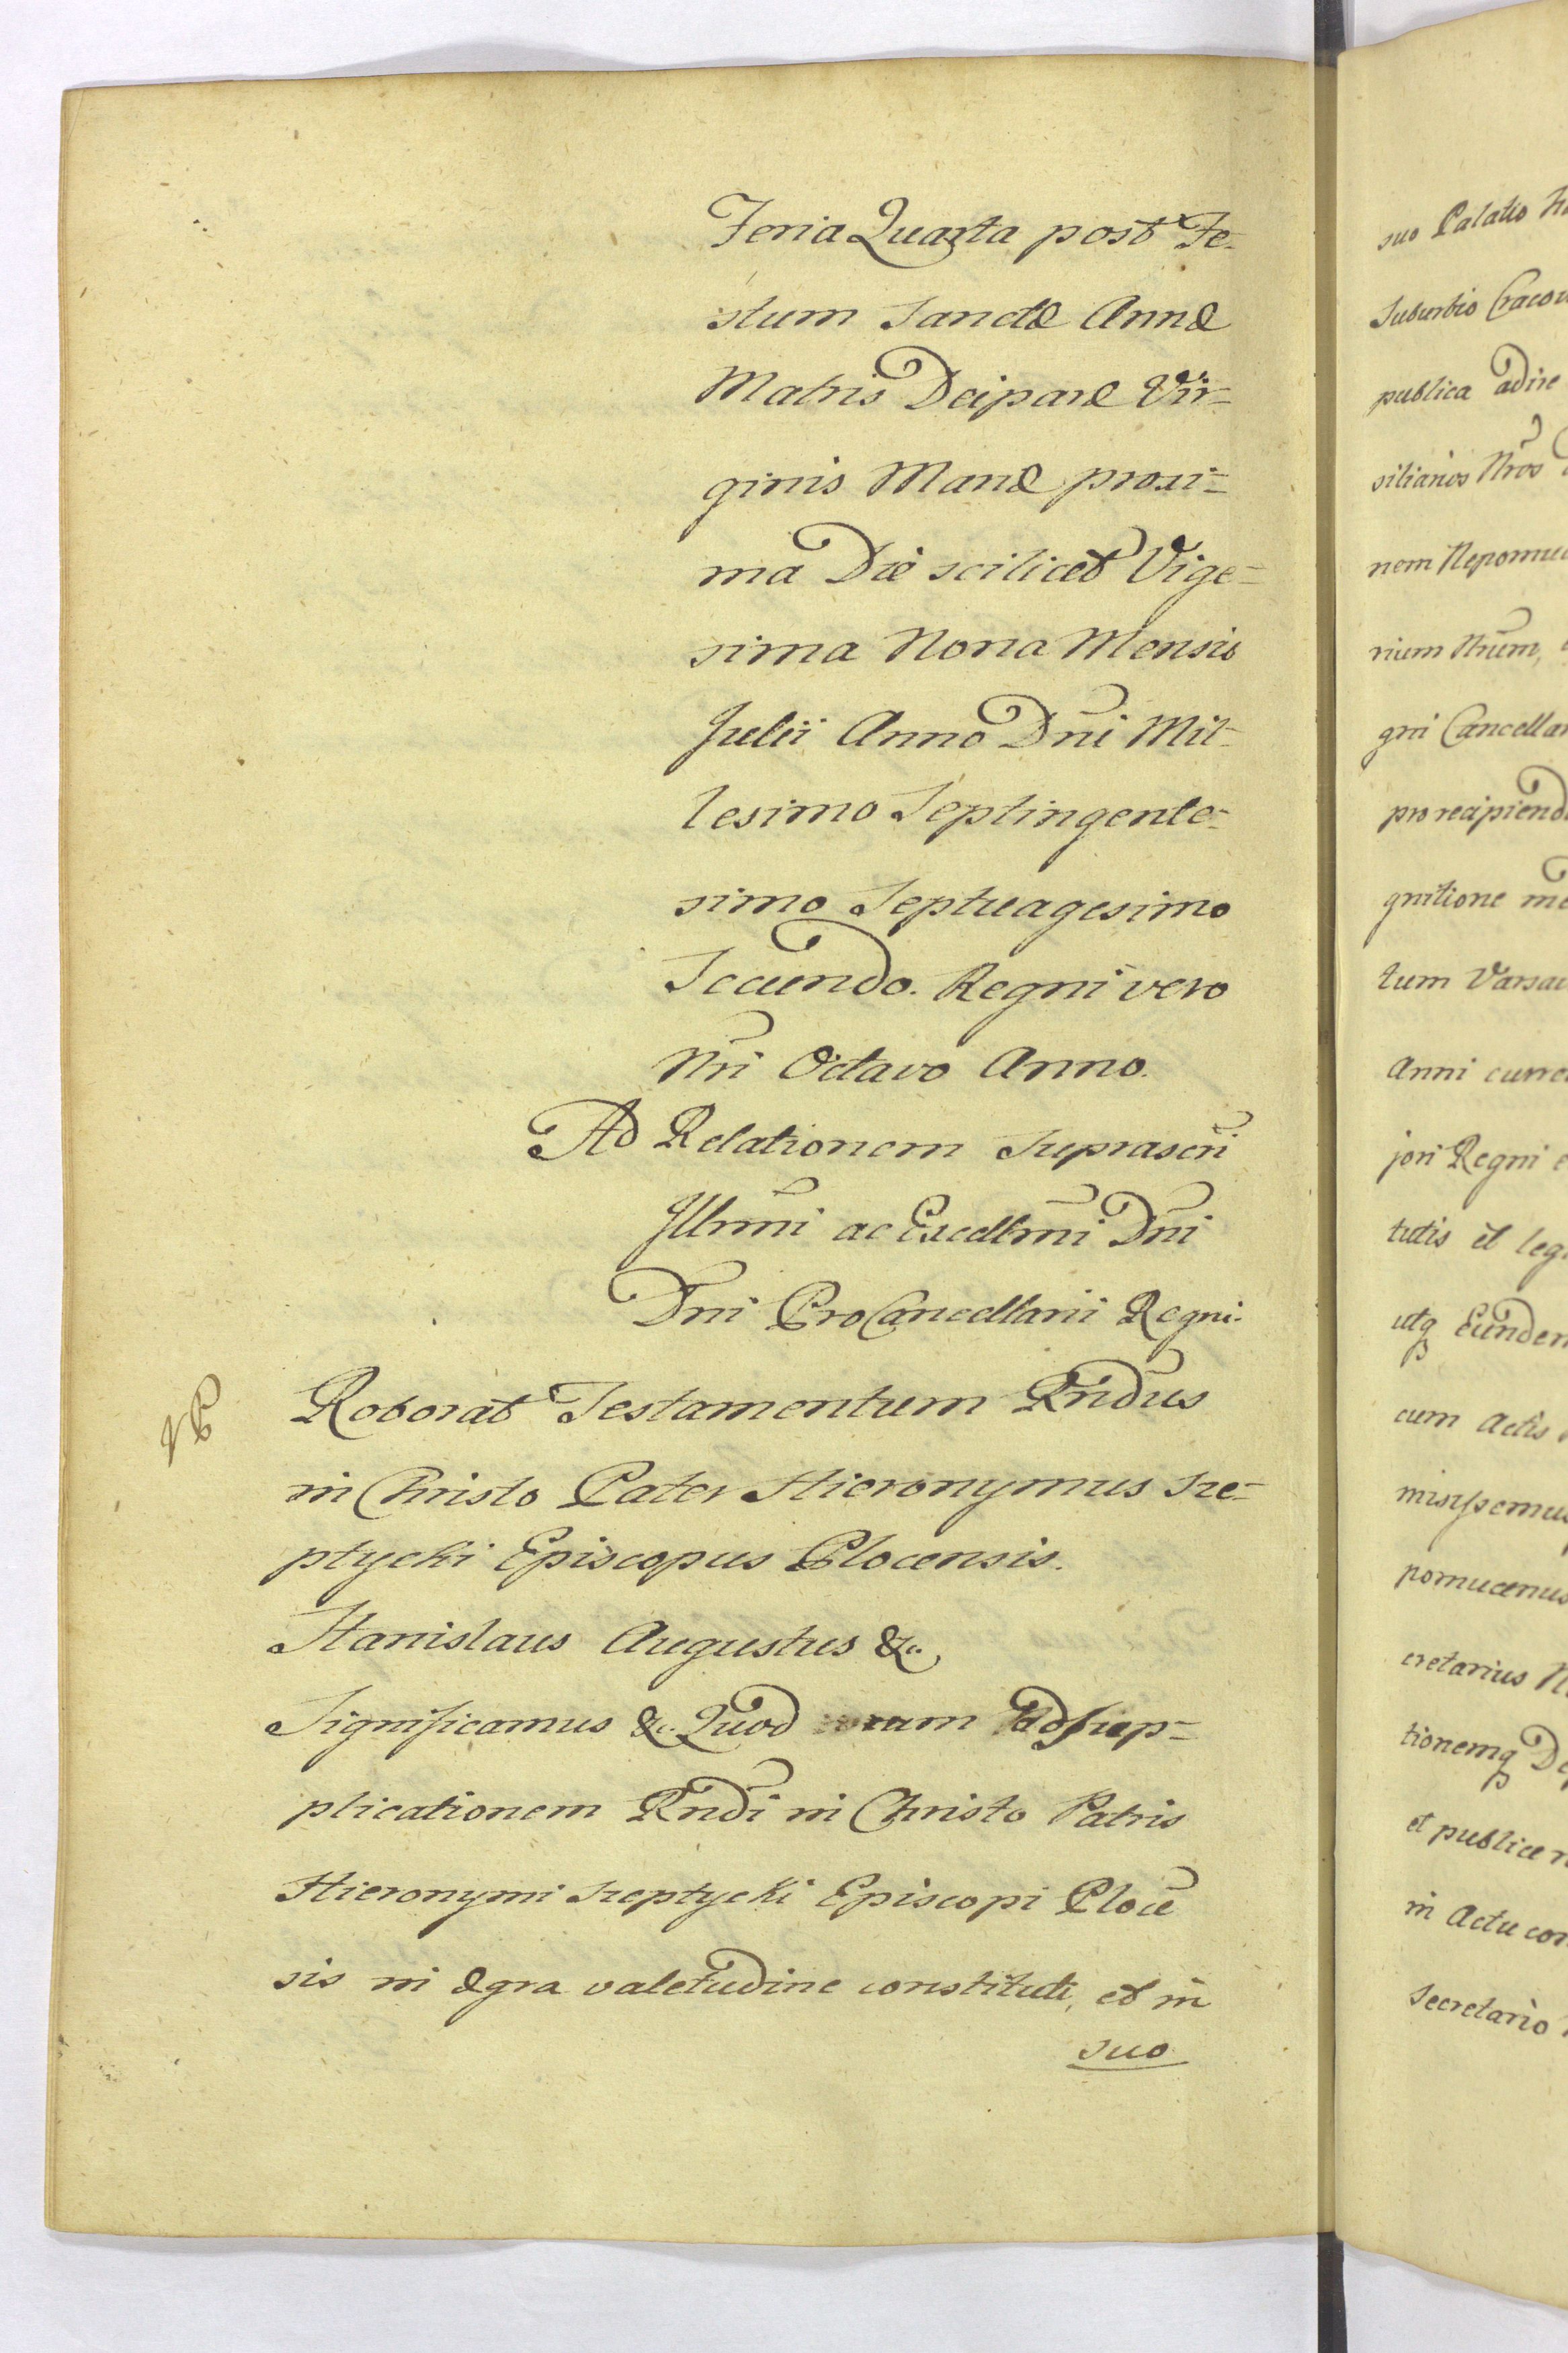 Feria Quarta post Fe-
stum Sanctæ Annæ
Matris Deiparæ Vir=
ginis Mariæ proxi=
ma Die scilicet Vige=
sima Nona Mensis
Julii Anno Dni Mil-
lesimo Septingente-
simo Septuagesimo
Secundo. Regni vero
Nri Octavo Anno.
Ad Relationem Suprascri
Illmi ac Excellmi Dni
Dni ProCancellarii Regni.
Roborat Testamentum Rndus
in Christo Pater Hieronymus Sze-
ptycki Episcopus Plocensis.
Stanislaus Augustus &c.
Significamus &c. Quod eam Ad sup=
plicationem Rndi in Christo Patris
Hieronymi Szeptycki Episcopi Plocē
sis in ægra valetudine constituti, et in
suo
suo Palatio
Suburbio
publica adire
siliarios Nros
nem
rium Nrum,
gni
pro
gnitione
tum
Anni
jori Regni
tutis et
utq Eundem
cum Actis
pomucenus
cretarius
tionemq
et publice
in Actu
Secretario